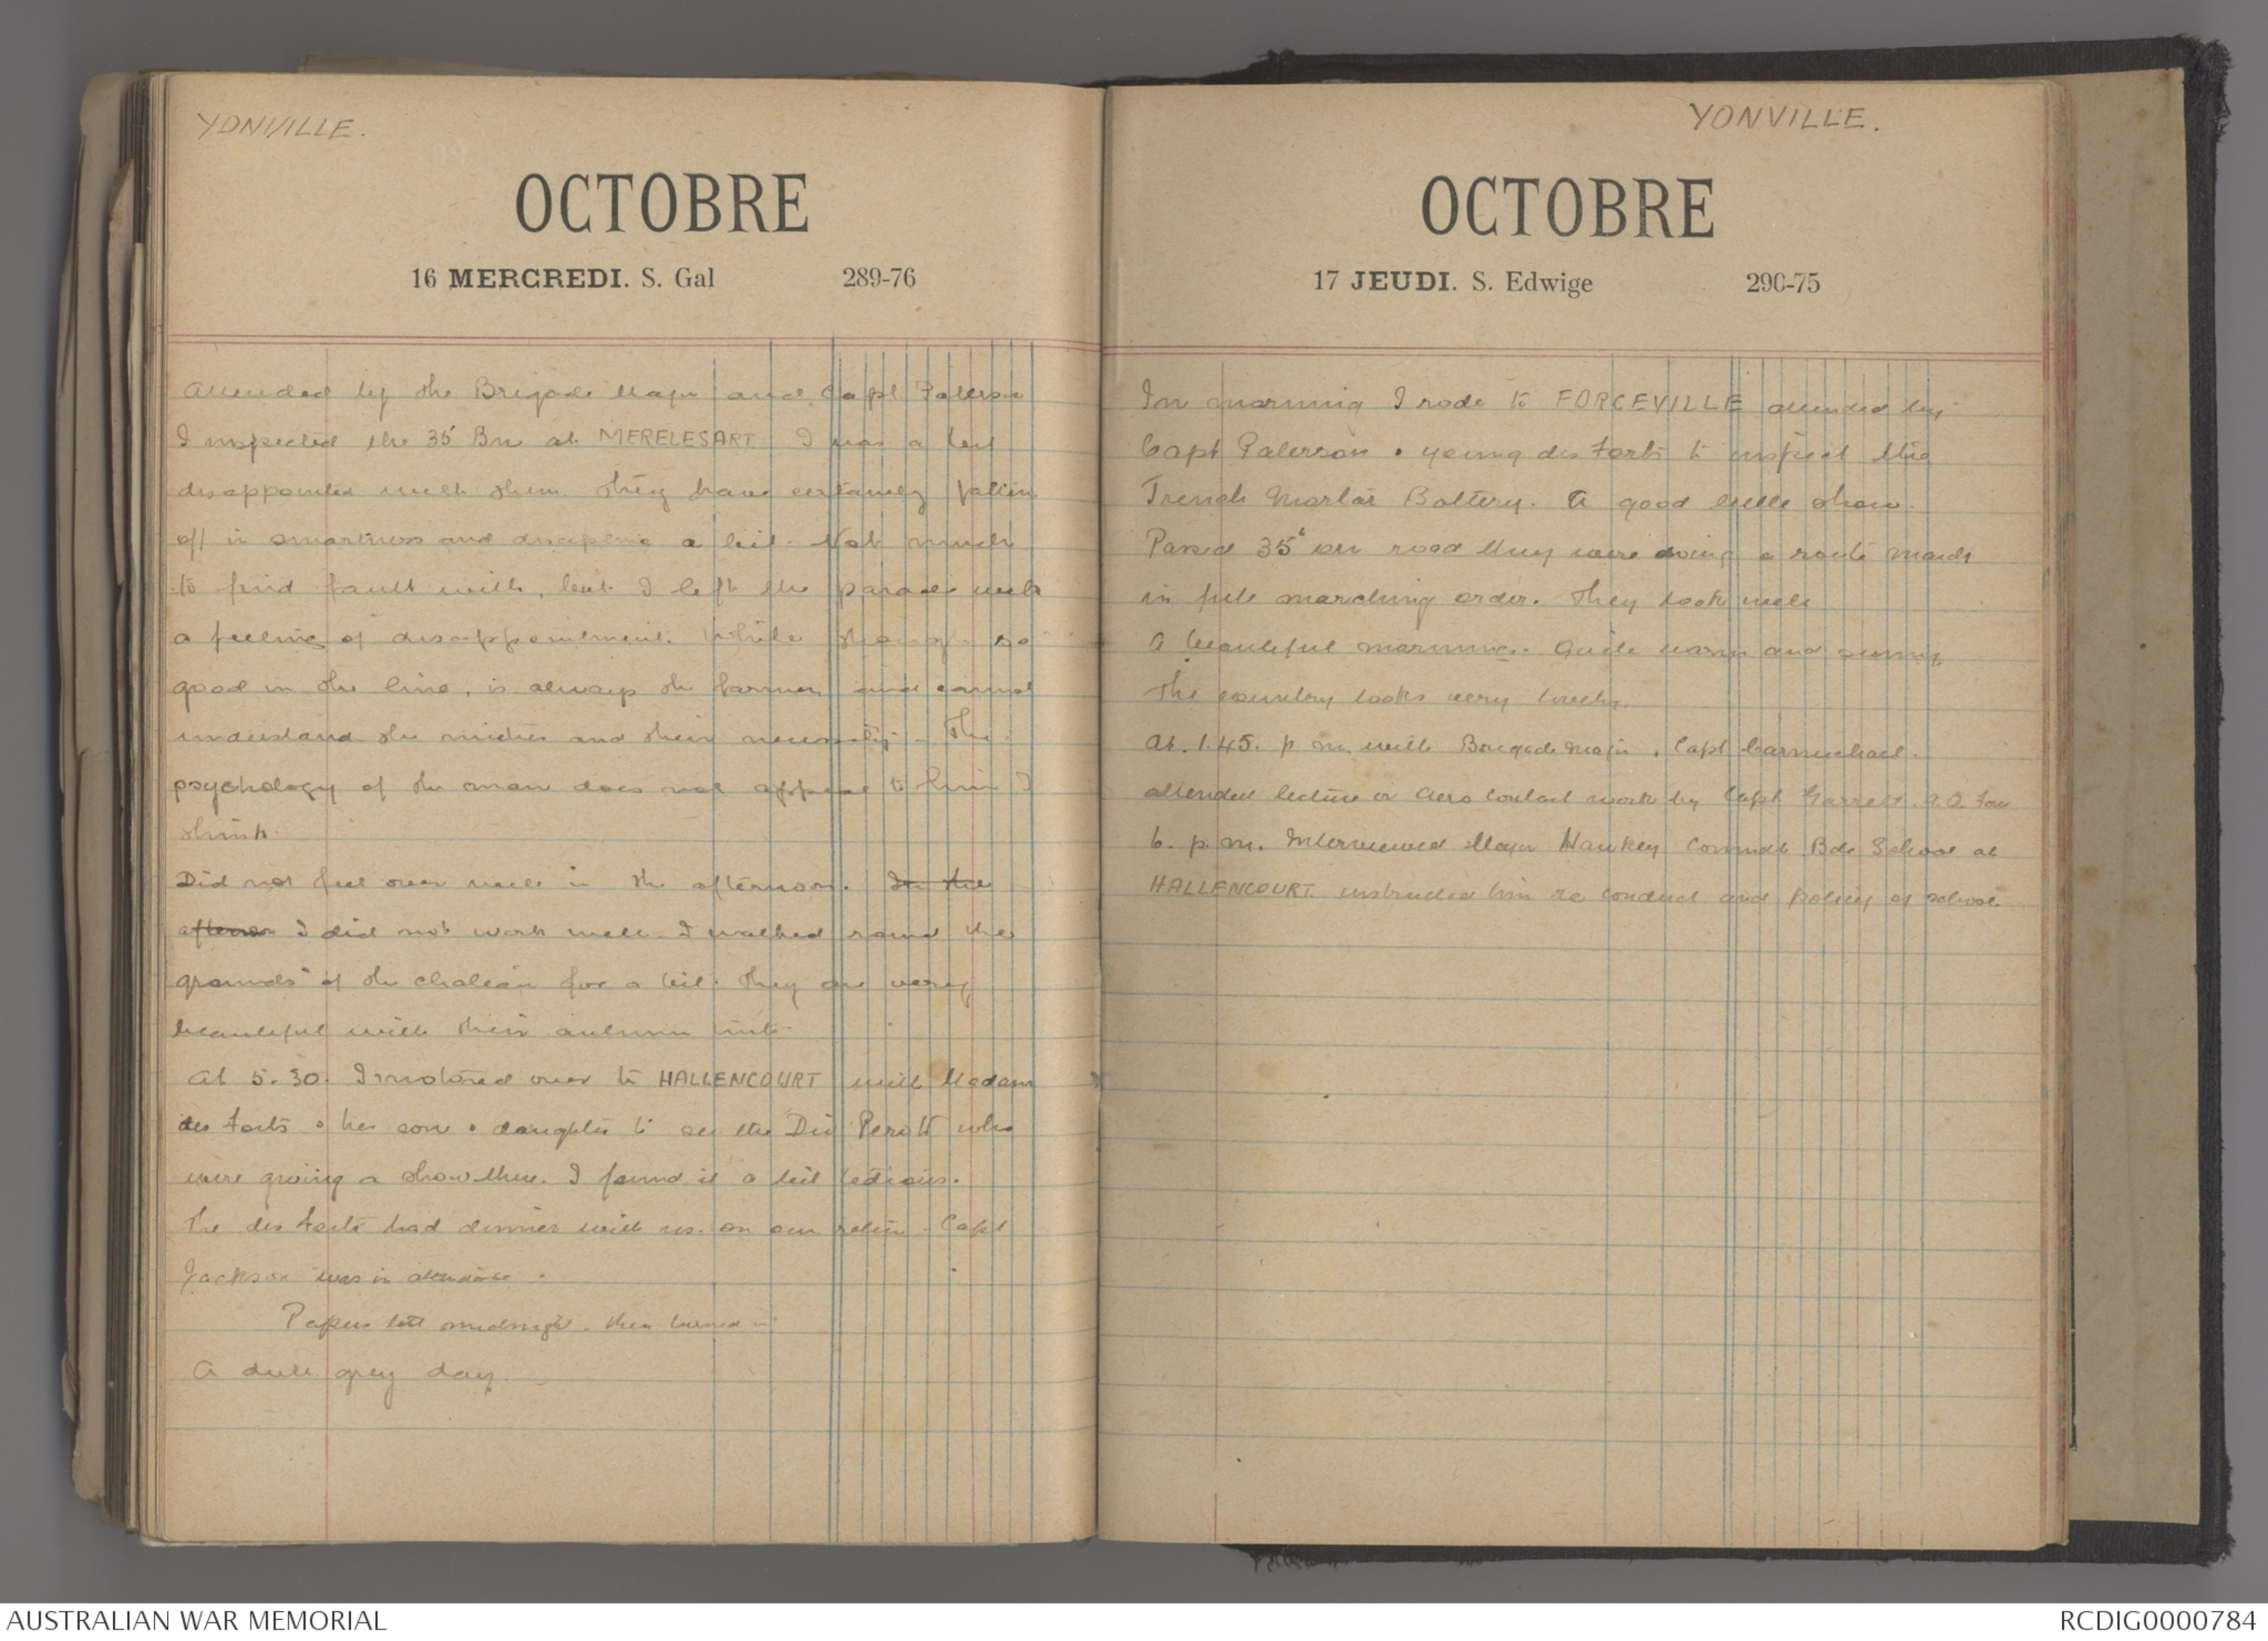 YONVILLE.
OCTOBRE
16 MERCREDI. S. Gal 289-76
Attended by the Brigade Major and Capt Paterson
I inspected the 35 Bn at MERELESART I was a bit
disappointed with them. They have certainly fallen
off in smartness and discipline a bit. Not much
to find fault with, but I left the parade with
a feeling of disappointment. White though so
good in the line, is always the farmer and cannot
understand the niceties and their necessity. The
psychology of the man does not appeal to him I
think.
Did not feel over well in the afternoon. In the
afternoon I did not work well. I walked round the
grounds of the chateau for a bit. They are very
beautiful with their autumn tints
At 5.30. I motored over to HALLENCOURT with Madam
des Forts & her son & daughter to see the Div who
were giving a show there. I found it a bit tedious.
The des Forts had dinner with us on our return. Capt
Jackson was in attendance.
Papers till midnight. then turned in
A dull grey day
YONVILLE.
OCTOBRE
17 JEUDI. S. Edwige 290-75
In morning I rode to FORCEVILLE attended by
Capt Paterson & young des Forts to inspect the
Trench Mortar Battery. A good little show.
Passed 35th on road they were doing a route march
in full marching order. They look well
A beautiful morning. Quite warm and sunny
The country looks very lovely.
At. 1.45. p.m. with Brigade Major & Capt Carmichael.
attended lecture on Aero contact work by Capt Garrett
6. p.m. Interviewed Major Hawkey Commdt Bde School at
HALLENCOURT instructed him re conduct and policy of school.
AUSTRALIAN WAR MEMORIAL
RCDIG0000784